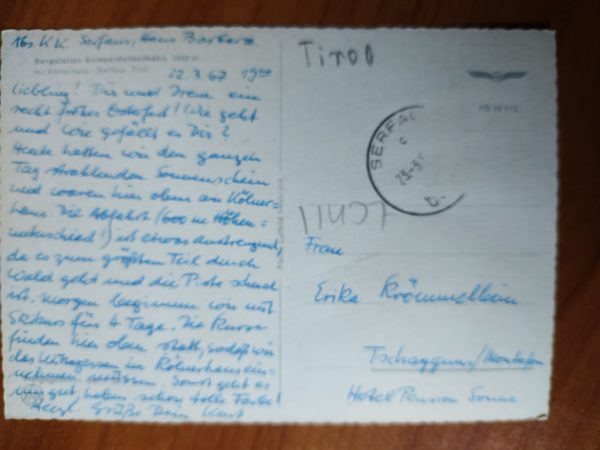 Abs. KK Serfaus, Haus Barbara
Bergstation Komperdellseilbahn, 1980 m
mit Kölnerhaus - Serfaus, Tirol
22.3.67 19⁰⁰
Liebling! Dir und Irene ein
recht frohes Osterfest! Wie geht
und wie gefällt es Dir?
Heute hatten wir den ganzen
Tag strahlenden Sonnenschein
und waren hier oben am Kölner=
haus. Die Abfahrt (600 m Höhen=
unterschied!) ist etwas anstrengend,
da es zum größten Teil durch
Wald geht und die Piste schmal
ist. Morgen beginnen wir mit
Skikurs für 4 Tage. Die Kurse
finden hier oben statt, sodaß wir
das Mittagessen im Kölnerhaus ein=
nehmen müssen. Sonst geht es
uns gut, haben schon tolle Farbe!
Herzl. Grüße Dein Kurt
Tirol
SERFAUS
c
23.3
b.
Frau
Erika Krömmelbein
Tschagguns/Montafon
Hotel Pension Sonne